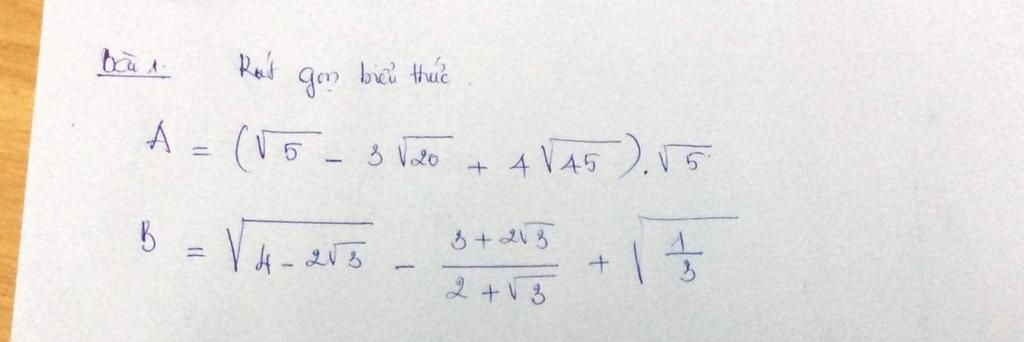 Bài 1. Rút gọn biểu thức.
A = (√5 - 3√20 + 4√45).√5
B = √(4 - 2√3) - (3 + 2√3)/(2 + √3) + √(1/3)